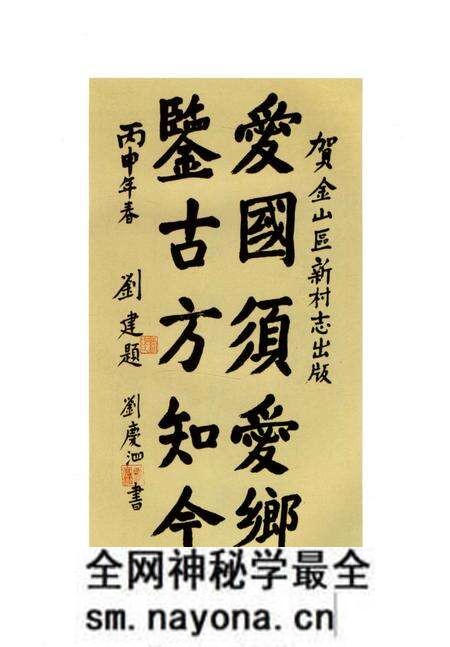 賀金山區新村志出版
愛國須愛鄉
鑒古方知今
丙申年春
劉建題
劉慶泗書
全网神秘学最全
sm.nayona.cn